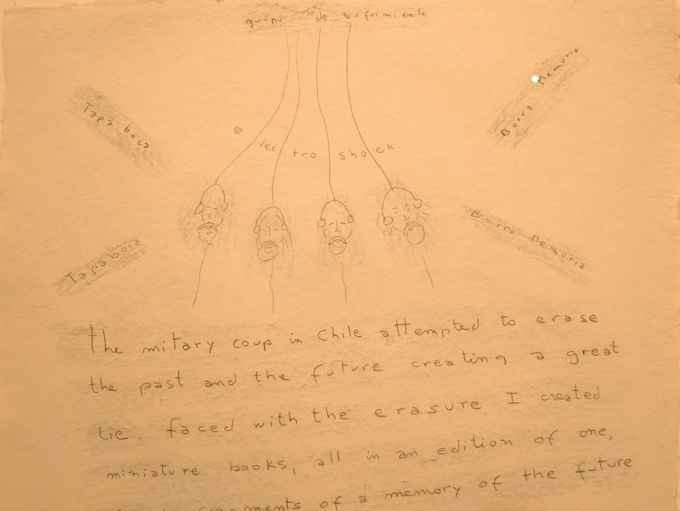 quipu de sufrimiento
Tapa boca
Borra Memoria
electro shock
Tapa boca
Borra Memoria
the mitary coup in Chile attempted to erase
the past and the future creating a great
tie. faced with the erasure I created
miniature books, all in an edition of one,
of a memory of the future